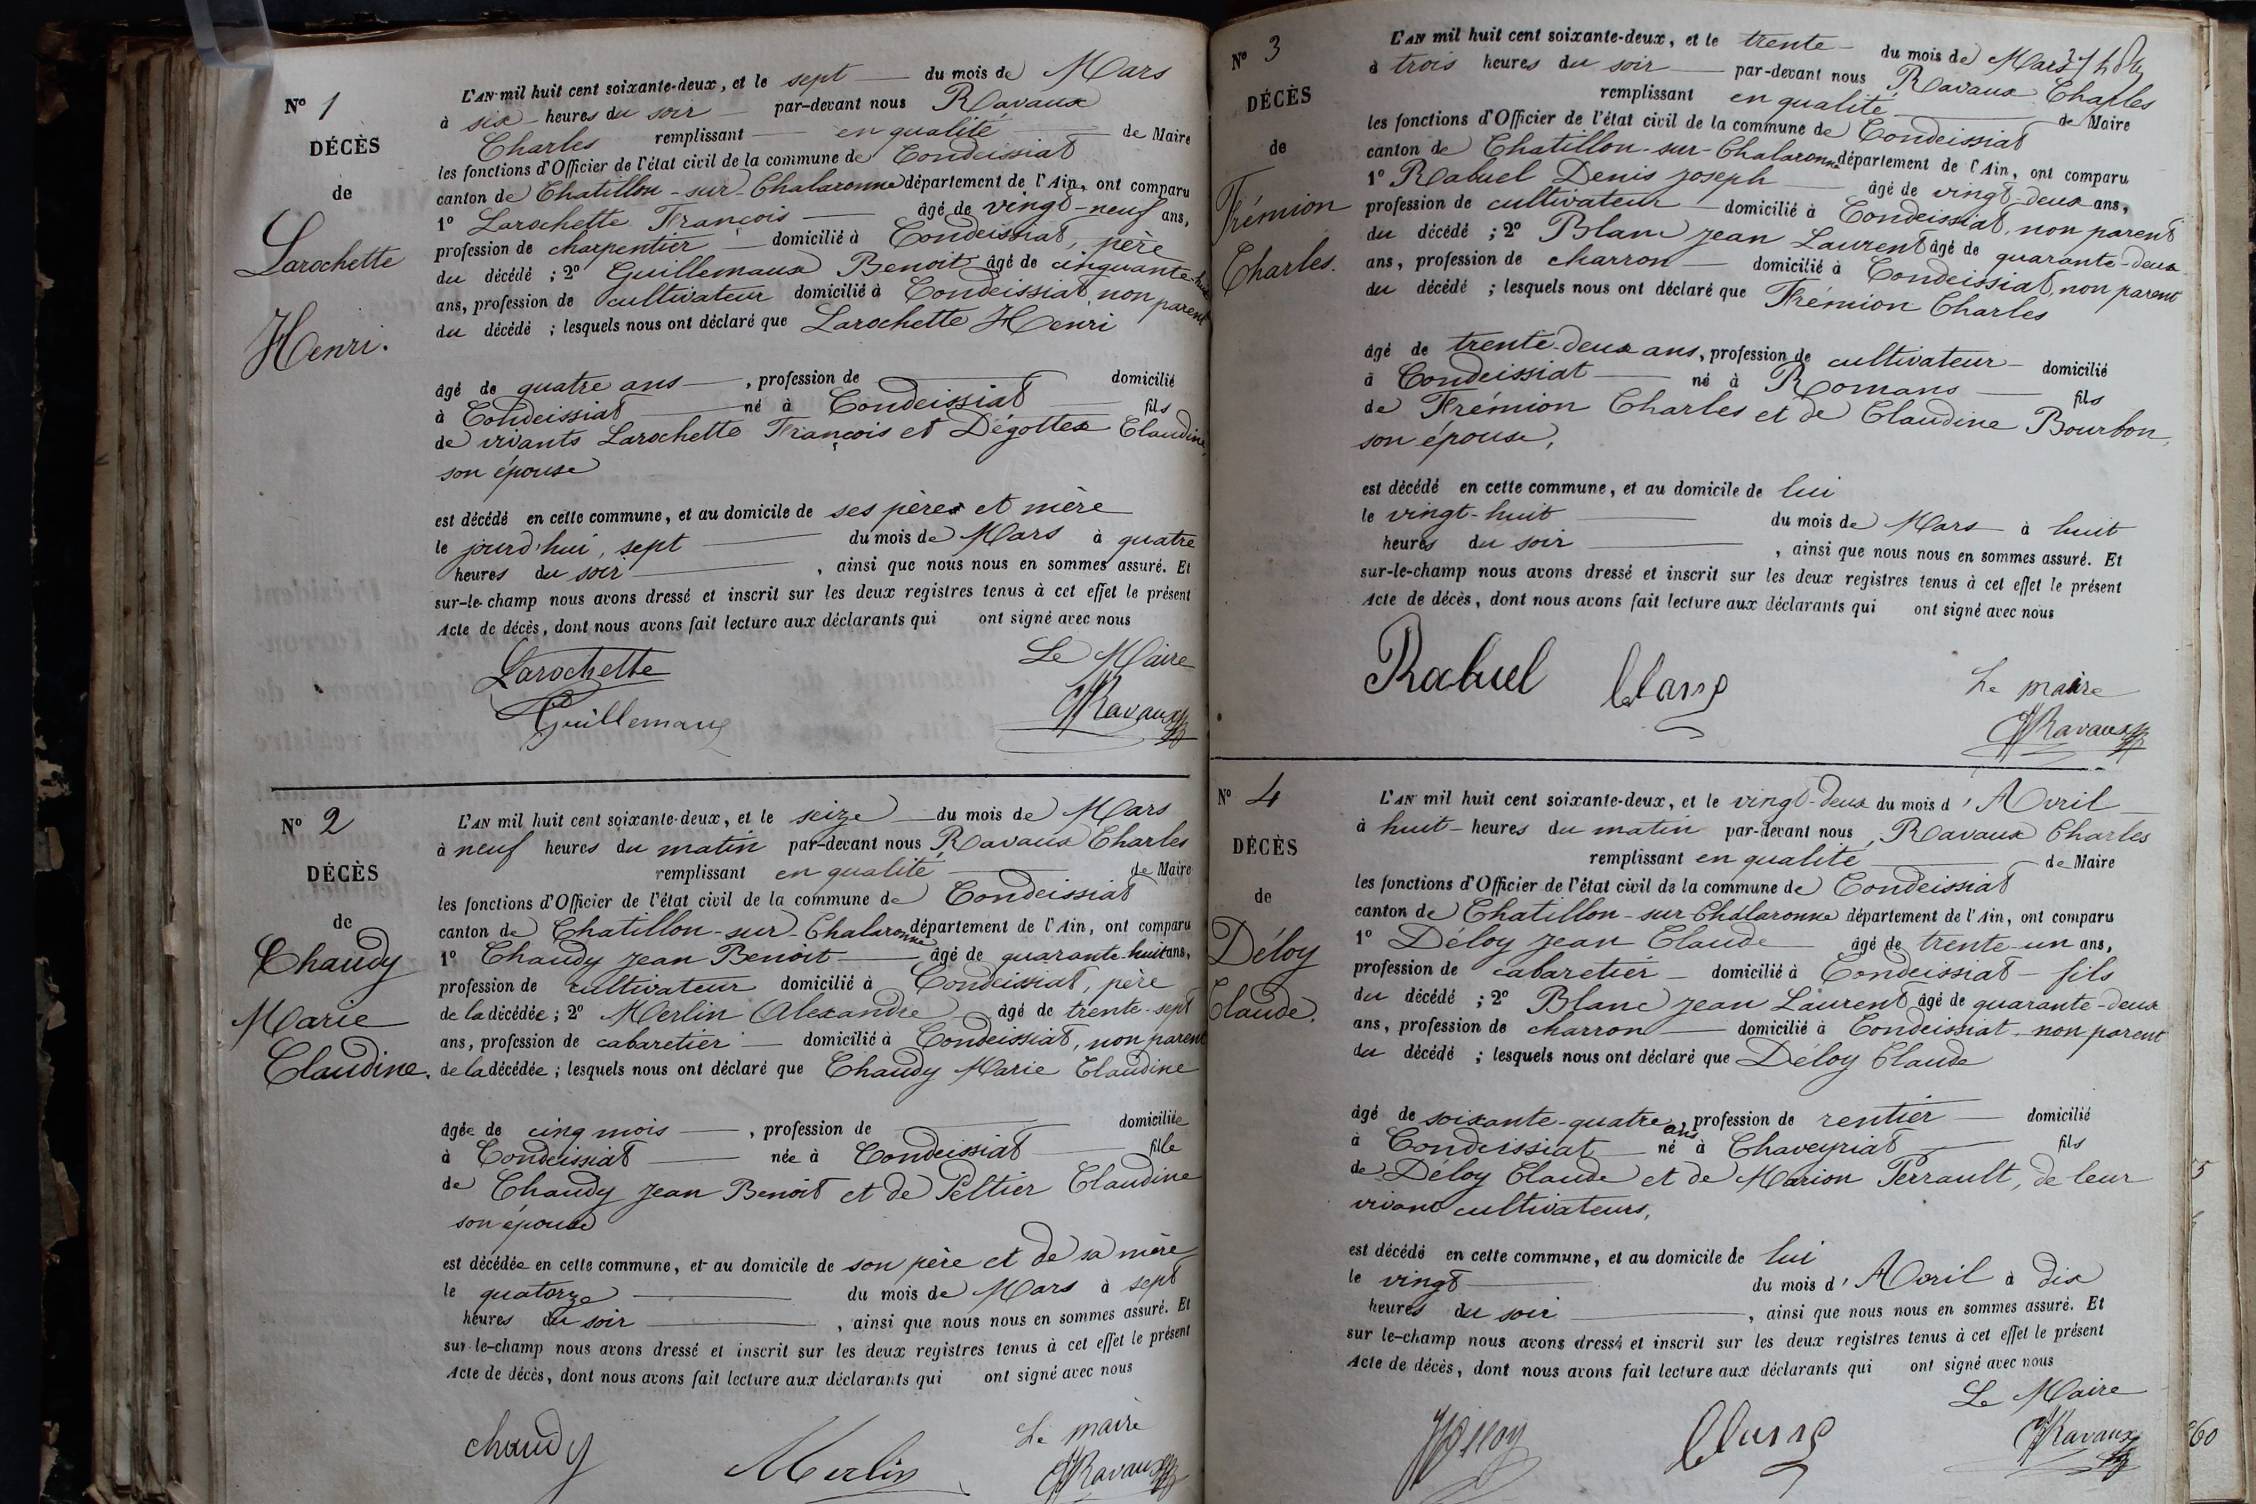 N° 1
DÉCÈS
de
Larochette
Henri.
L'AN mil huit cent soixante-deux, et le sept du mois de Mars
à six heures du soir par-devant nous Ravaux
Charles remplissant en qualité de Maire
les fonctions d'Officier de l'état civil de la commune de Condeissiat
canton de Chatillon-sur-Chalaronne département de l'Ain, ont comparu
1° Larochette François âgé de vingt-neuf ans,
profession de charpentier domicilié à Condeissiat, père
du décédé ; 2° Guillemaux Benoit âgé de cinquante-huit
ans, profession de cultivateur domicilié à Condeissiat, non parent
du décédé ; lesquels nous ont déclaré que Larochette Henri
âgé de quatre ans, profession de domicilié
à Condeissiat né à Condeissiat fils
de vivants Larochette François et Dégottex Claudine,
son épouse
est décédé en cette commune, et au domicile de ses pères et mère
le jourd'hui, sept du mois de Mars à quatre
heures du soir, ainsi que nous nous en sommes assuré. Et
sur-le-champ nous avons dressé et inscrit sur les deux registres tenus à cet effet le présent
Acte de décès, dont nous avons fait lecture aux déclarants qui ont signé avec nous
Larochette
Le Maire
Guillemaux
Ravaux
N° 2
DÉCÈS
de
Chaudy
Marie
Claudine.
L'AN mil huit cent soixante-deux, et le seize du mois de Mars
à neuf heures du matin par-devant nous Ravaux Charles
remplissant en qualité de Maire
les fonctions d'Officier de l'état civil de la commune de Condeissiat
canton de Chatillon-sur-Chalaronne département de l'Ain, ont comparu
1° Chaudy Jean Benoit âgé de quarante-huit ans,
profession de cultivateur domicilié à Condeissiat, père
de la décédée ; 2° Merlin Alexandre âgé de trente-sept
ans, profession de cabaretier domicilié à Condeissiat, non parent
de la décédée ; lesquels nous ont déclaré que Chaudy Marie Claudine
âgée de cinq mois, profession de domiciliée
à Condeissiat née à Condeissiat fille
de Chaudy Jean Benoit et de Peltier Claudine
son épouse
est décédée en cette commune, et au domicile de son père et de sa mère
le quatorze du mois de Mars à sept
heures du soir, ainsi que nous nous en sommes assuré. Et
sur-le-champ nous avons dressé et inscrit sur les deux registres tenus à cet effet le présent
Acte de décès, dont nous avons fait lecture aux déclarants qui ont signé avec nous
chaudy Merlin Le maire
Ravaux
N° 3
DÉCÈS
de
Frémion
Charles.
L'AN mil huit cent soixante-deux, et le trente du mois de Mars
à trois heures du soir par-devant nous Ravaux Charles
remplissant en qualité de Maire
les fonctions d'Officier de l'état civil de la commune de Condeissiat
canton de Chatillon-sur-Chalaronne département de l'Ain, ont comparu
1° Rabuel Denis Joseph âgé de vingt-deux ans,
profession de cultivateur domicilié à Condeissiat, non parent
du décédé ; 2° Blanc Jean Laurent âgé de quarante-deux
ans, profession de charron domicilié à Condeissiat, non parent
du décédé ; lesquels nous ont déclaré que Frémion Charles
âgé de trente-deux ans, profession de cultivateur domicilié
à Condeissiat né à Romans fils
de Frémion Charles et de Claudine Bourbon,
son épouse,
est décédé en cette commune, et au domicile de lui
le vingt-huit du mois de Mars à huit
heures du soir, ainsi que nous nous en sommes assuré. Et
sur-le-champ nous avons dressé et inscrit sur les deux registres tenus à cet effet le présent
Acte de décès, dont nous avons fait lecture aux déclarants qui ont signé avec nous
Rabuel Blanc Le maire
Ravaux
N° 4
DÉCÈS
de
Déloy
Claude.
L'AN mil huit cent soixante-deux, et le vingt-deux du mois d'Avril
à huit heures du matin par-devant nous Ravaux Charles
remplissant en qualité de Maire
les fonctions d'Officier de l'état civil de la commune de Condeissiat
canton de Chatillon-sur-Chalaronne département de l'Ain, ont comparu
1° Déloy Jean Claude âgé de trente-un ans,
profession de cabaretier domicilié à Condeissiat fils
du décédé ; 2° Blanc Jean Laurent âgé de quarante-deux
ans, profession de charron domicilié à Condeissiat non parent
du décédé ; lesquels nous ont déclaré que Déloy Claude
âgé de soixante-quatre ans profession de rentier domicilié
à Condeissiat né à Chaveyriat fils
de Déloy Claude et de Marion Perrault, de leur
vivant cultivateurs,
est décédé en cette commune, et au domicile de lui
le vingt du mois d'Avril à dix
heures du soir, ainsi que nous nous en sommes assuré. Et
sur le-champ nous avons dressé et inscrit sur les deux registres tenus à cet effet le présent
Acte de décès, dont nous avons fait lecture aux déclarants qui ont signé avec nous
Le Maire
Blanc Ravaux